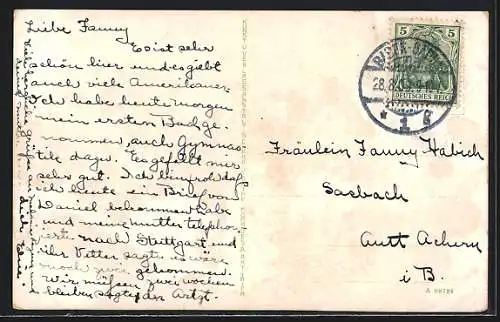 Liebe Fanny
Es ist sehr
schön hier und es giebt
auch viele Amerikaner
Ich habe heute morgen
mein ersten Bad ge-
nommen, auch Gymnas-
tik dazu. Es gefällt mir
sehr gut. Ich bin froh daß
ich heute ein Brief von
Daniel bekommen habe
und meine mutter telepho-
nierte nach Stuttgart und
Vetter sagte es wäre
noch gekommen.
Wir müssen zwei wochen
bleiben sagte der Artzt.
Viele herzliche grüsse an
deich Elsie.
5 5
BADEN-BADEN
28.8.
DEUTSCHES REICH
* 1 k
Fräulein Fanny Habich
Sasbach
Amt Achern
i B.